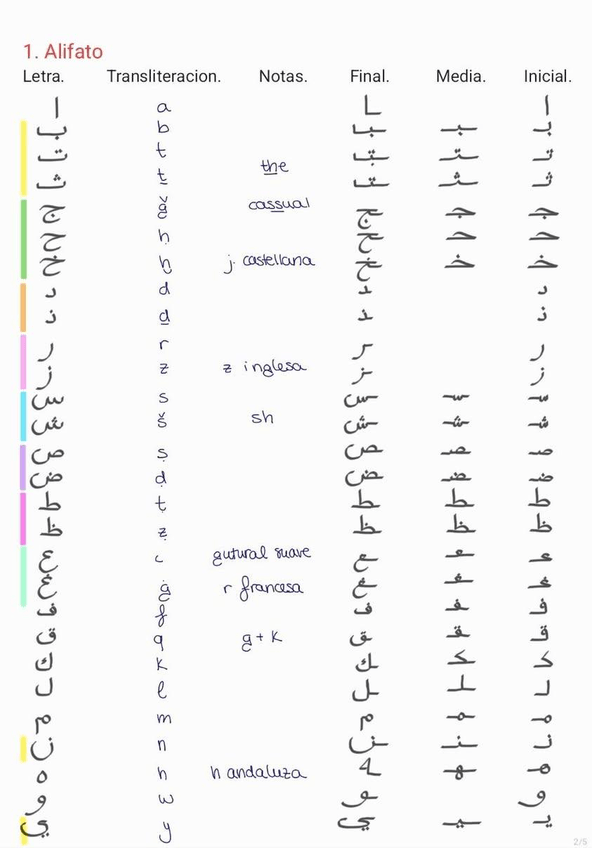 1. Alifato
Letra. Transliteracion. Notas. Final. Media. Inicial.
ا a ـا ا
ب b ـبـب ـبـ بـ
ت t ـتـت ـتـ تـ
ث ṯ the ـثـث ـثـ ثـ
ج ǧ cassual ـج ـجـ جـ
ح ḥ ـح ـحـ حـ
خ ḫ j. castellana ـخ ـخـ خـ
د d ـد د
ذ ḏ ـذ ذ
ر r ـر ر
ز z z inglesa ـز ز
س s ـس ـسـ سـ
ش š sh ـش ـشـ شـ
ص ṣ ـص ـصـ صـ
ض ḍ ـض ـضـ ضـ
ط ṭ ـط ـطـ طـ
ظ ẓ ـظ ـظـ ظـ
ع c gutural suave ـع ـعـ عـ
غ ġ r francesa ـغ ـغـ غـ
ف f ـف ـفـ فـ
ق q g + k ـق ـقـ قـ
ك k ـك ـكـ كـ
ل l ـل ـلـ لـ
م m ـم ـمـ مـ
ن n ـن ـنـ نـ
ه h h andaluza ـه ـهـ هـ
و w ـو و
ي y ـي ـيـ يـ
2/5